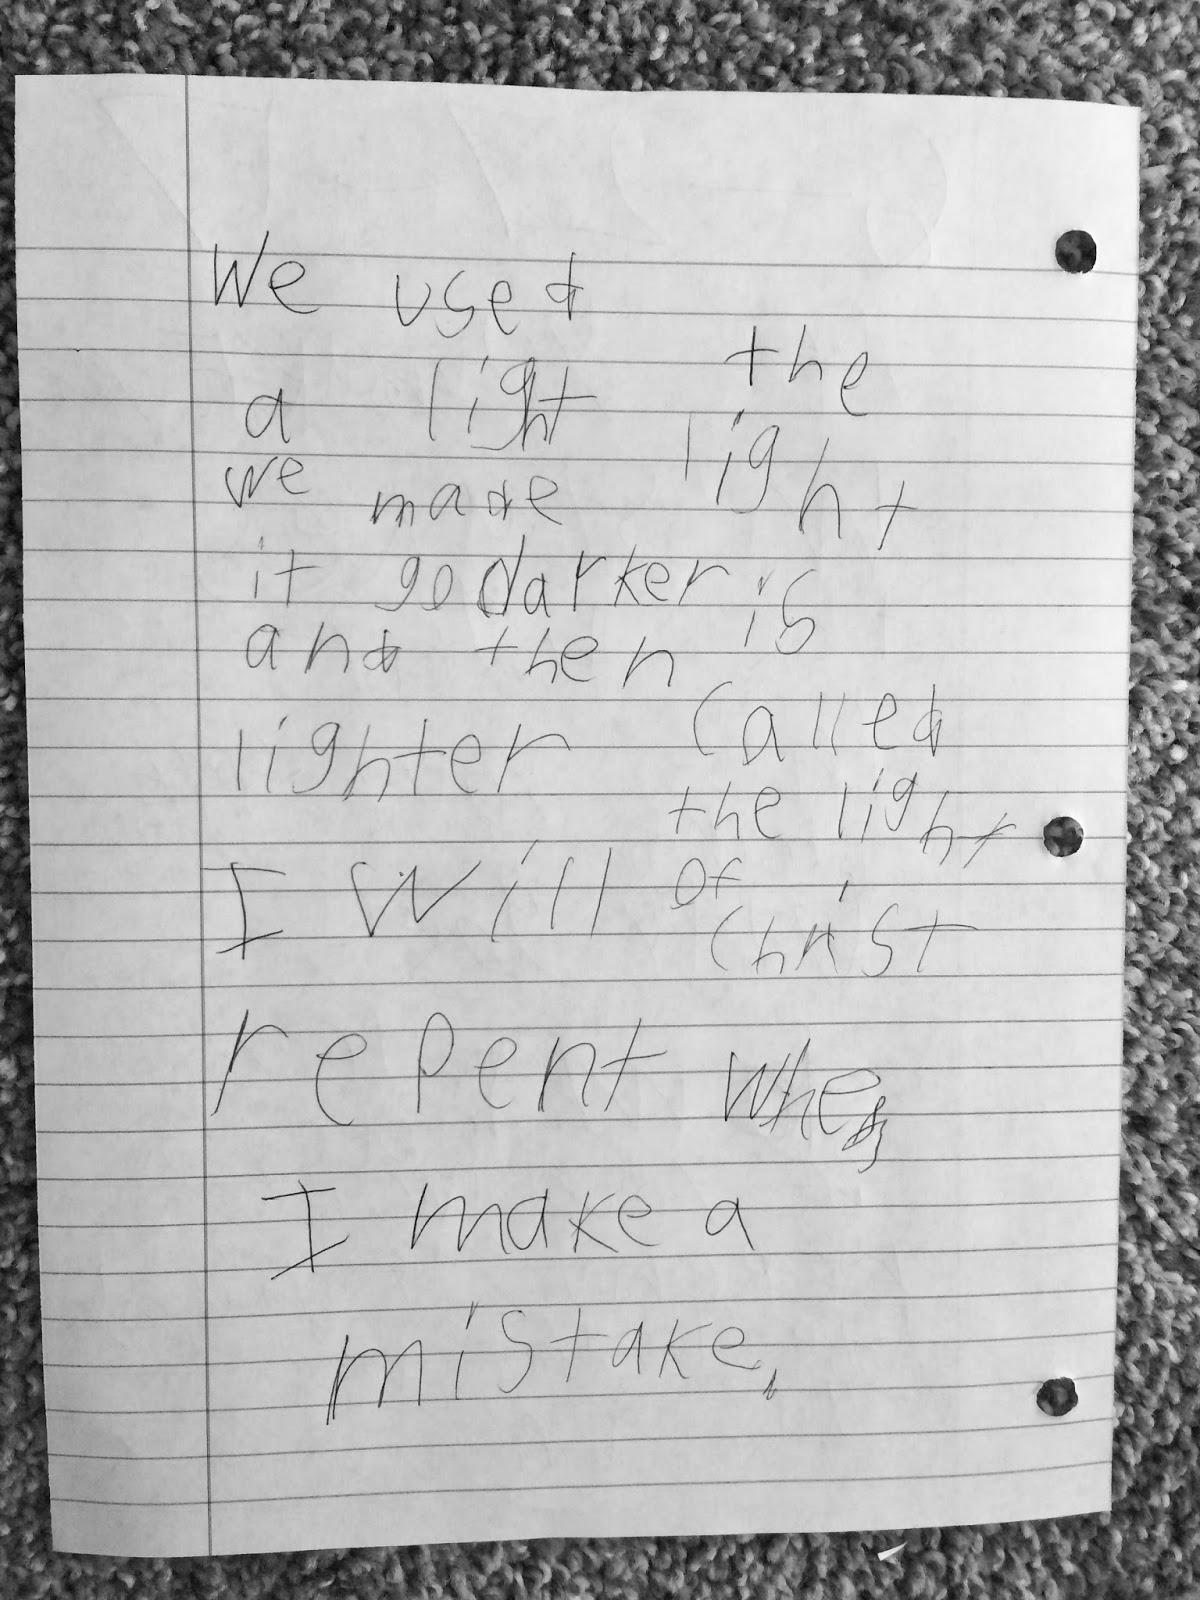 We used
a light
we made
it go darker
and then
lighter
the
light
is
called
the light
of
christ
I will
repent when
I make a
mistake.